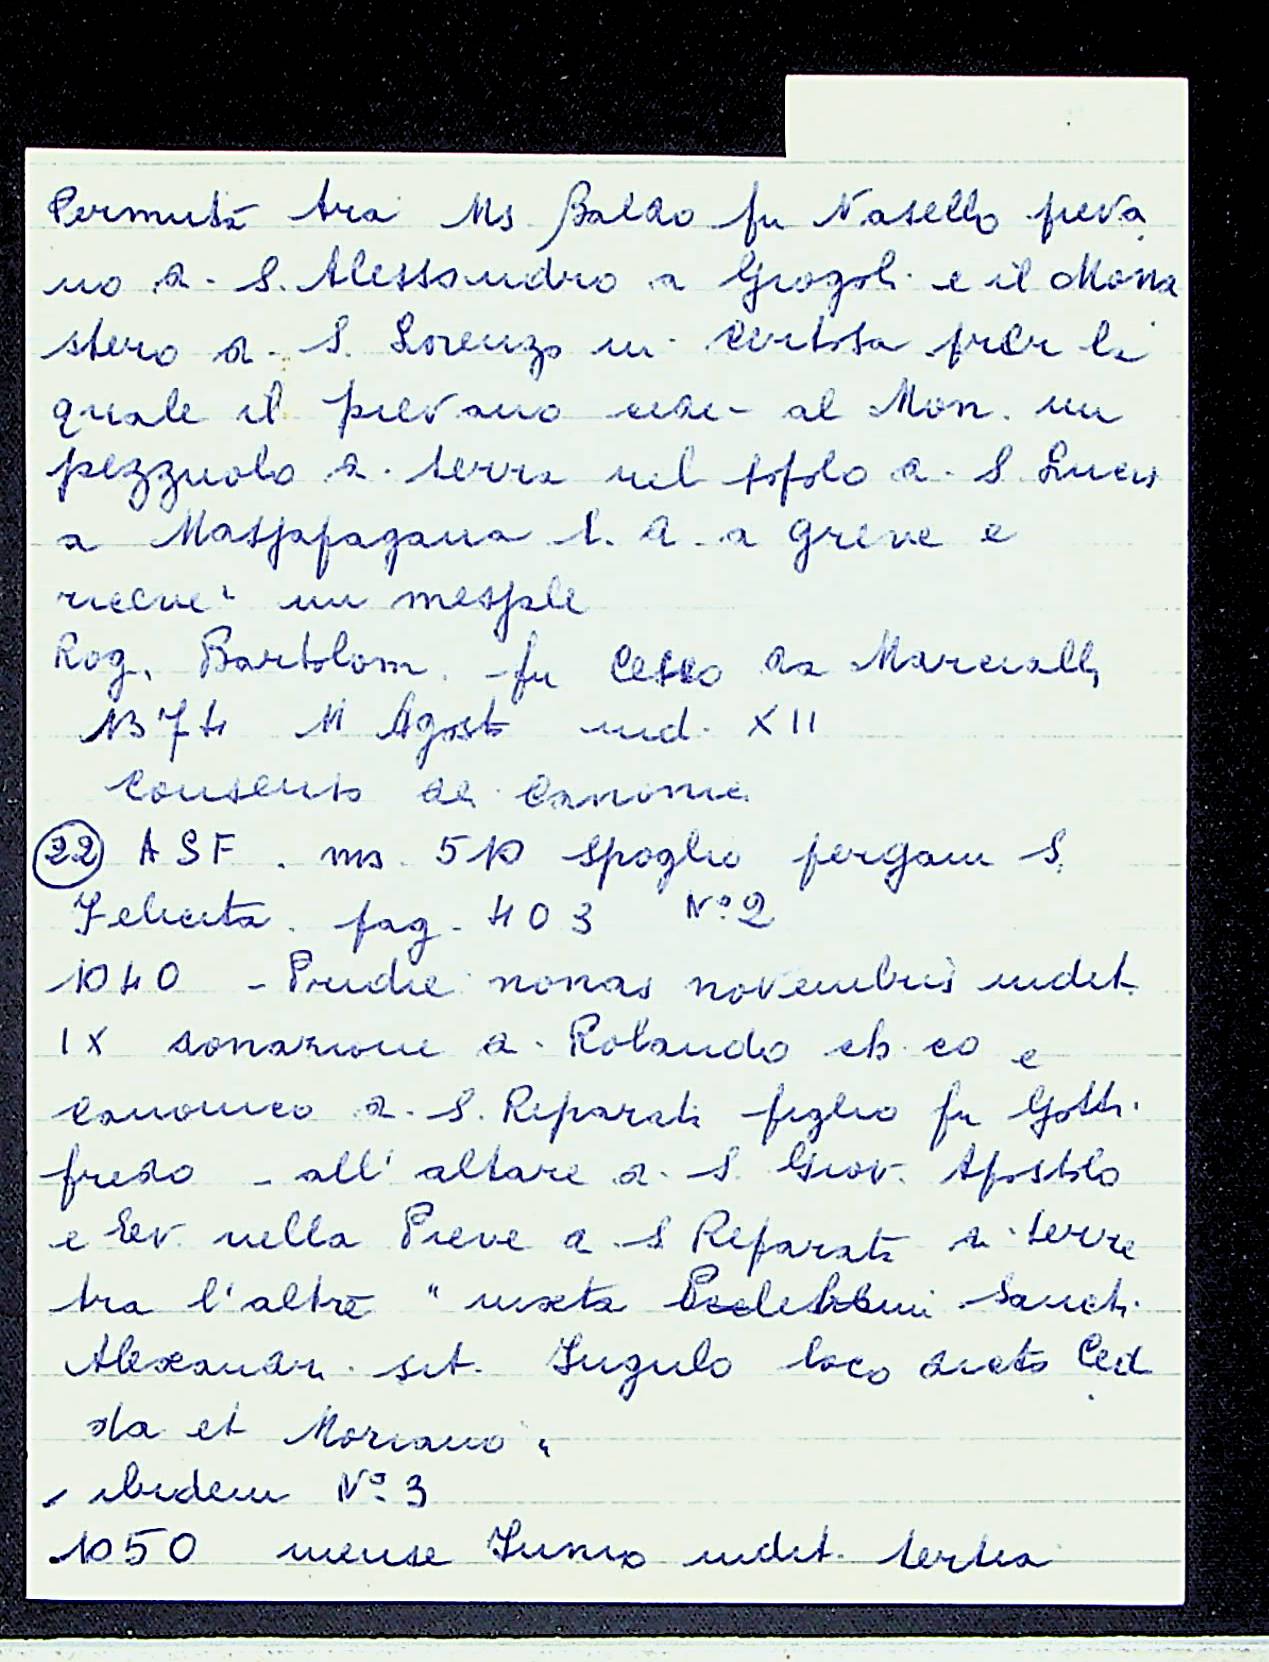 Permuta tra Ms Baldo fu Nasello pieva
no di S. Alessandro a Giogoli e il Mona
stero di S. Lorenzo in Certosa per la
quale il pievano cede al Mon. un
pezzuolo di terra nel popolo di S. Lucia
a Massapagana l. d. a Greve e
riceve un
Rog. Bartolom. fu Cecco da Marcialli
1374 11 Agosto ind. XII
Consenso dei Canonici
22 ASF. ms. 510 spoglio pergam S.
Felicita. pag. 403 N° 2
1040 - Pridie nonas novembris indit.
IX donazione di Rolando e
Canonico di S. Reparata figlio fu Gotti
fredo - all' altare di S. Giov. Apostolo
e Ev. nella Pieve di S Reparata di terre
tra l'altre " iuxta Sancti
Alexandri sit. Iugulo loco dicto Ced
da et Moriano "
, ibidem N° 3
1050 mense Iunio indit. tertia